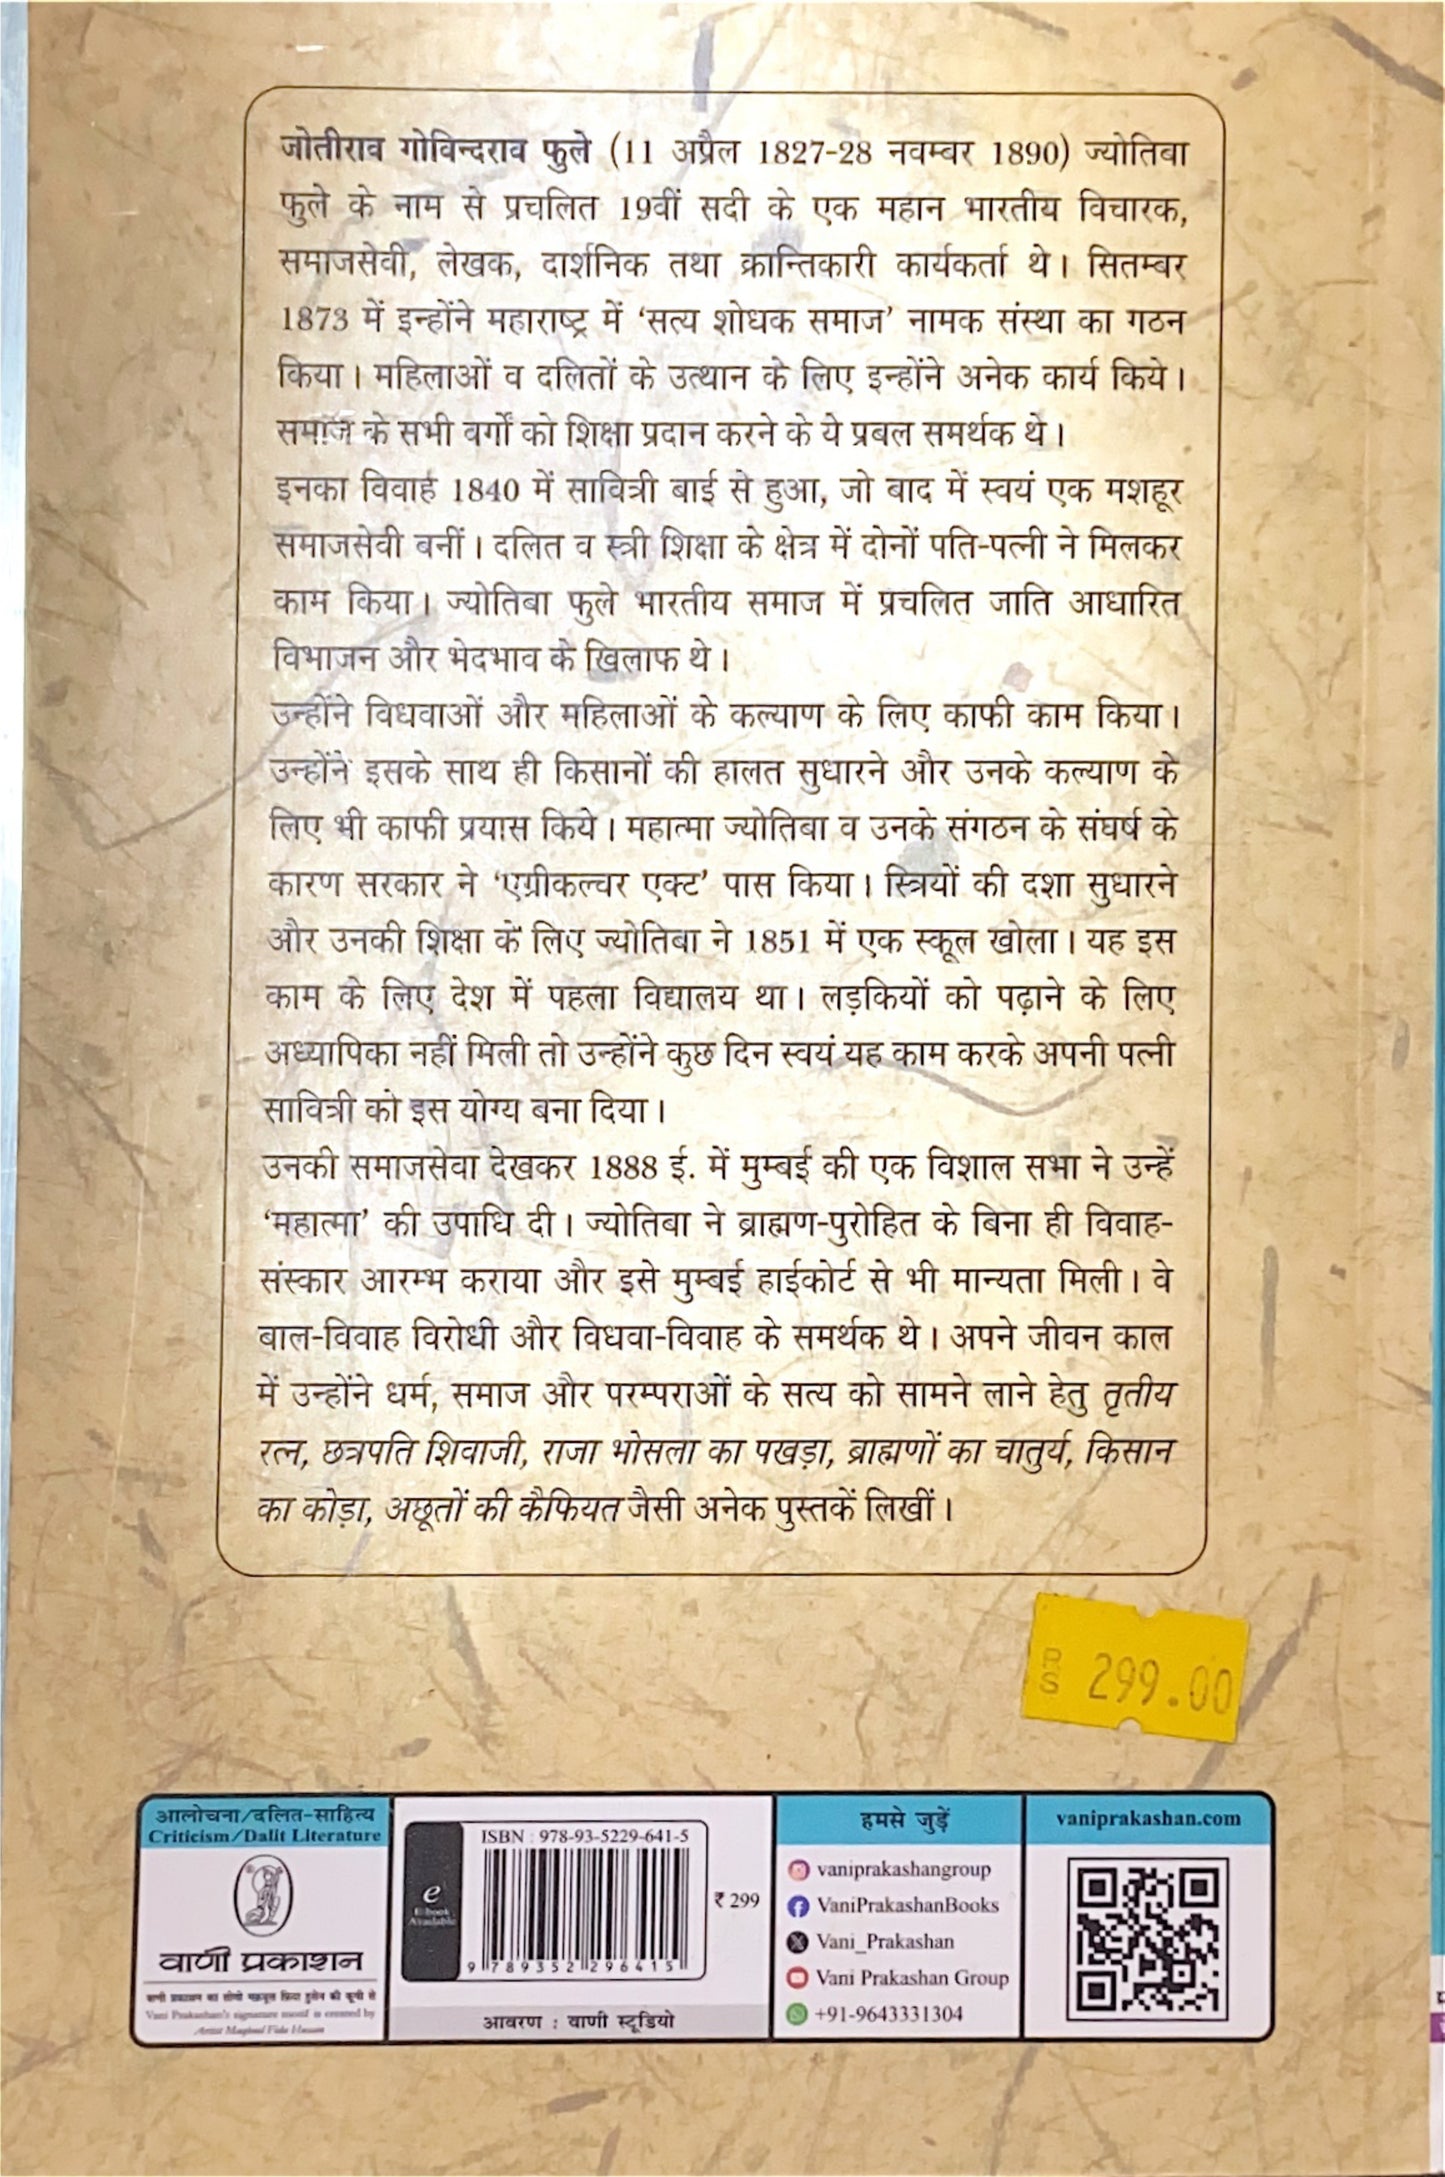 जोतीराव गोविन्दराव फुले (11 अप्रैल 1827-28 नवम्बर 1890) ज्योतिबा
फुले के नाम से प्रचलित 19वीं सदी के एक महान भारतीय विचारक,
समाजसेवी, लेखक, दार्शनिक तथा क्रान्तिकारी कार्यकर्ता थे। सितम्बर
1873 में इन्होंने महाराष्ट्र में ‘सत्य शोधक समाज’ नामक संस्था का गठन
किया। महिलाओं व दलितों के उत्थान के लिए इन्होंने अनेक कार्य किये।
समाज के सभी वर्गों को शिक्षा प्रदान करने के ये प्रबल समर्थक थे।
इनका विवाह 1840 में सावित्री बाई से हुआ, जो बाद में स्वयं एक मशहूर
समाजसेवी बनीं। दलित व स्त्री शिक्षा के क्षेत्र में दोनों पति-पत्नी ने मिलकर
काम किया। ज्योतिबा फुले भारतीय समाज में प्रचलित जाति आधारित
विभाजन और भेदभाव के खिलाफ थे।
उन्होंने विधवाओं और महिलाओं के कल्याण के लिए काफी काम किया।
उन्होंने इसके साथ ही किसानों की हालत सुधारने और उनके कल्याण के
लिए भी काफी प्रयास किये। महात्मा ज्योतिबा व उनके संगठन के संघर्ष के
कारण सरकार ने ‘एग्रीकल्चर एक्ट’ पास किया। स्त्रियों की दशा सुधारने
और उनकी शिक्षा के लिए ज्योतिबा ने 1851 में एक स्कूल खोला। यह इस
काम के लिए देश में पहला विद्यालय था। लड़कियों को पढ़ाने के लिए
अध्यापिका नहीं मिली तो उन्होंने कुछ दिन स्वयं यह काम करके अपनी पत्नी
सावित्री को इस योग्य बना दिया।
उनकी समाजसेवा देखकर 1888 ई. में मुम्बई की एक विशाल सभा ने उन्हें
‘महात्मा’ की उपाधि दी। ज्योतिबा ने ब्राह्मण-पुरोहित के बिना ही विवाह-
संस्कार आरम्भ कराया और इसे मुम्बई हाईकोर्ट से भी मान्यता मिली। वे
बाल-विवाह विरोधी और विधवा-विवाह के समर्थक थे। अपने जीवन काल
में उन्होंने धर्म, समाज और परम्पराओं के सत्य को सामने लाने हेतु तृतीय
रत्न, छत्रपति शिवाजी, राजा भोसला का पखड़ा, ब्राह्मणों का चातुर्य, किसान
का कोड़ा, अछूतों की कैफियत जैसी अनेक पुस्तकें लिखीं।
RS 299.00
आलोचना/दलित-साहित्य
Criticism/Dalit Literature
वाणी प्रकाशन
वाणी प्रकाशन का लोगो मक़बूल फ़िदा हुसेन की कूची से
Vani Prakashan's signature motif is created by
Artist Maqbool Fida Husain
e
E-book
Available
ISBN : 978-93-5229-641-5
9 789352 296415
₹ 299
आवरण : वाणी स्टूडियो
हमसे जुड़ें
vaniprakashangroup
VaniPrakashanBooks
Vani_Prakashan
Vani Prakashan Group
+91-9643331304
vaniprakashan.com